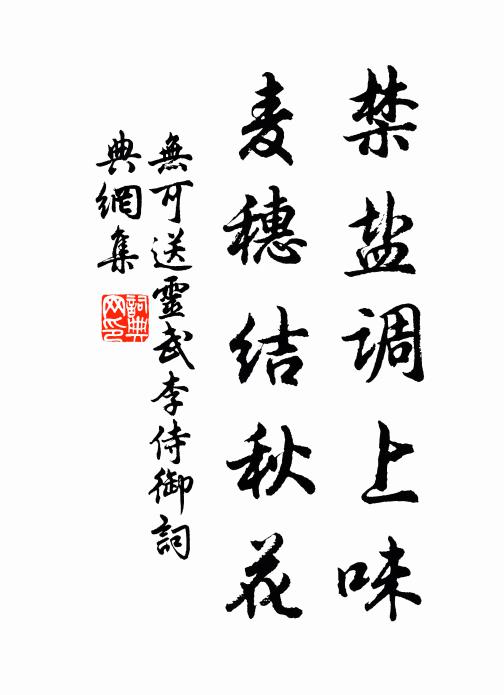 禁盐调上味
麦穗结秋花
無可送靈武李侍御詞
典網集
詞典网印